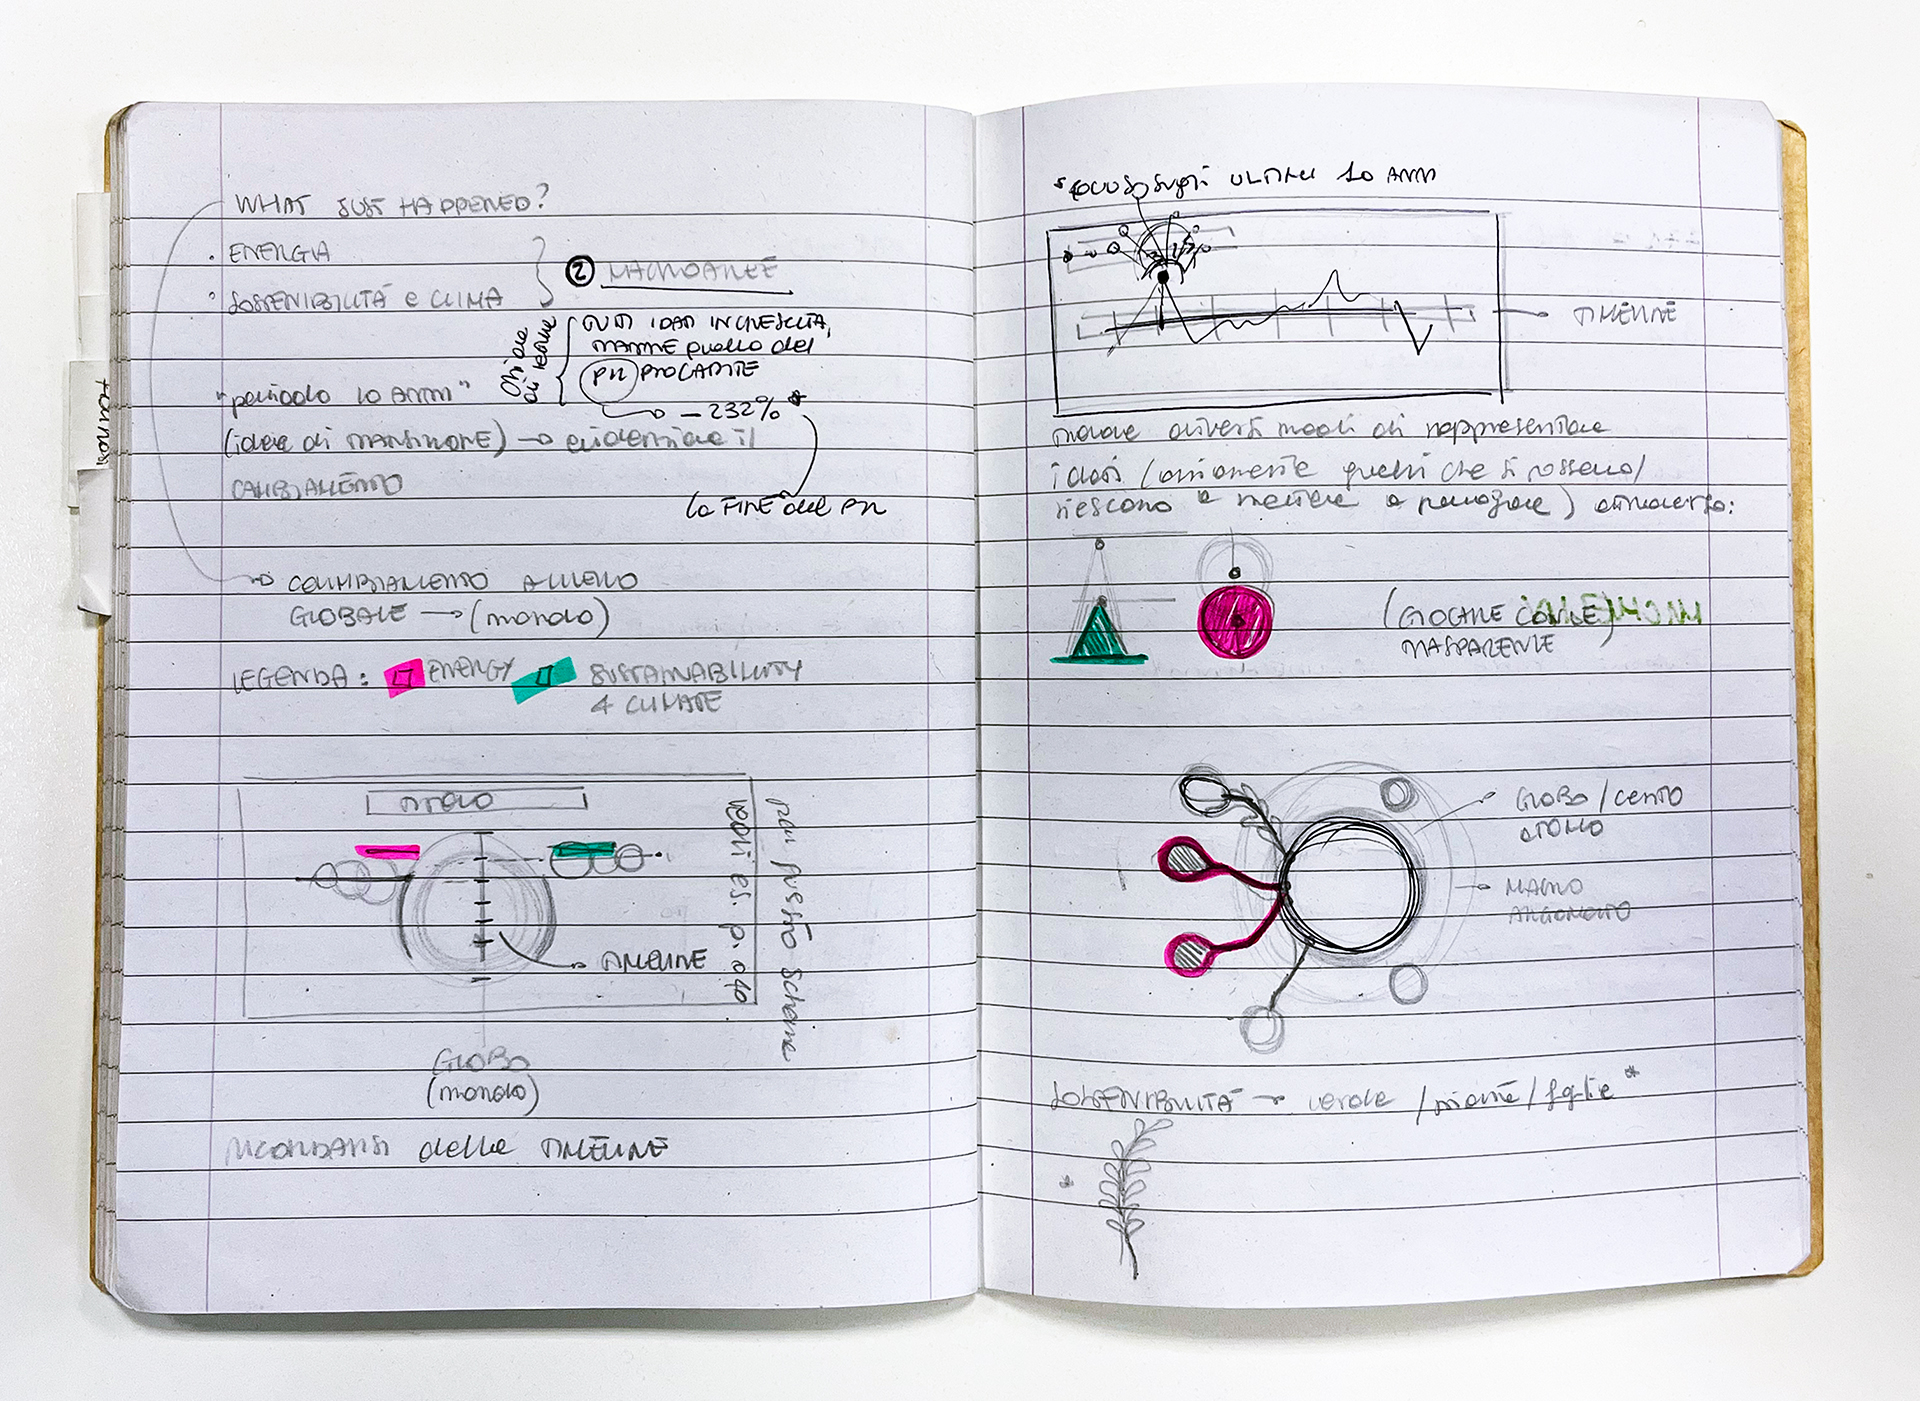 WHAT JUST HAPPENED?
• ENERGIA
• SOSTENIBILITÀ E CLIMA
2 MACROAREE
Chiave di lettura
TUTTI I DATI IN CRESCITA,
TRANNE quello del
PIL PROCAPITE
→ -232% *
"periodo 10 ANNI"
(idea di TRANSIZIONE) → evidenziare il
CAMBIAMENTO
la FINE del PIL
→ CAMBIAMENTO A LIVELLO
GLOBALE → (mondo)
LEGENDA: ENERGY SUSTAINABILITY
& CLIMATE
TITOLO
TIMELINE
per questo schema
vedi es. p. 040
GLOBO
(mondo)
RICORDARSI della TIMELINE
*FOCUS sugli ULTIMI 10 ANNI
→ TIMELINE
trovare diversi modi di rappresentare
i dati (ovviamente quelli che si possono/
riescono a mettere a paragone) attraverso:
(GIOCARE CON LE
TRASPARENZE)
→ GLOBO/CENTRO
ATOMO
→ MACRO
ARGOMENTO
SOSTENIBILITÀ → verde /piante/foglie*
*